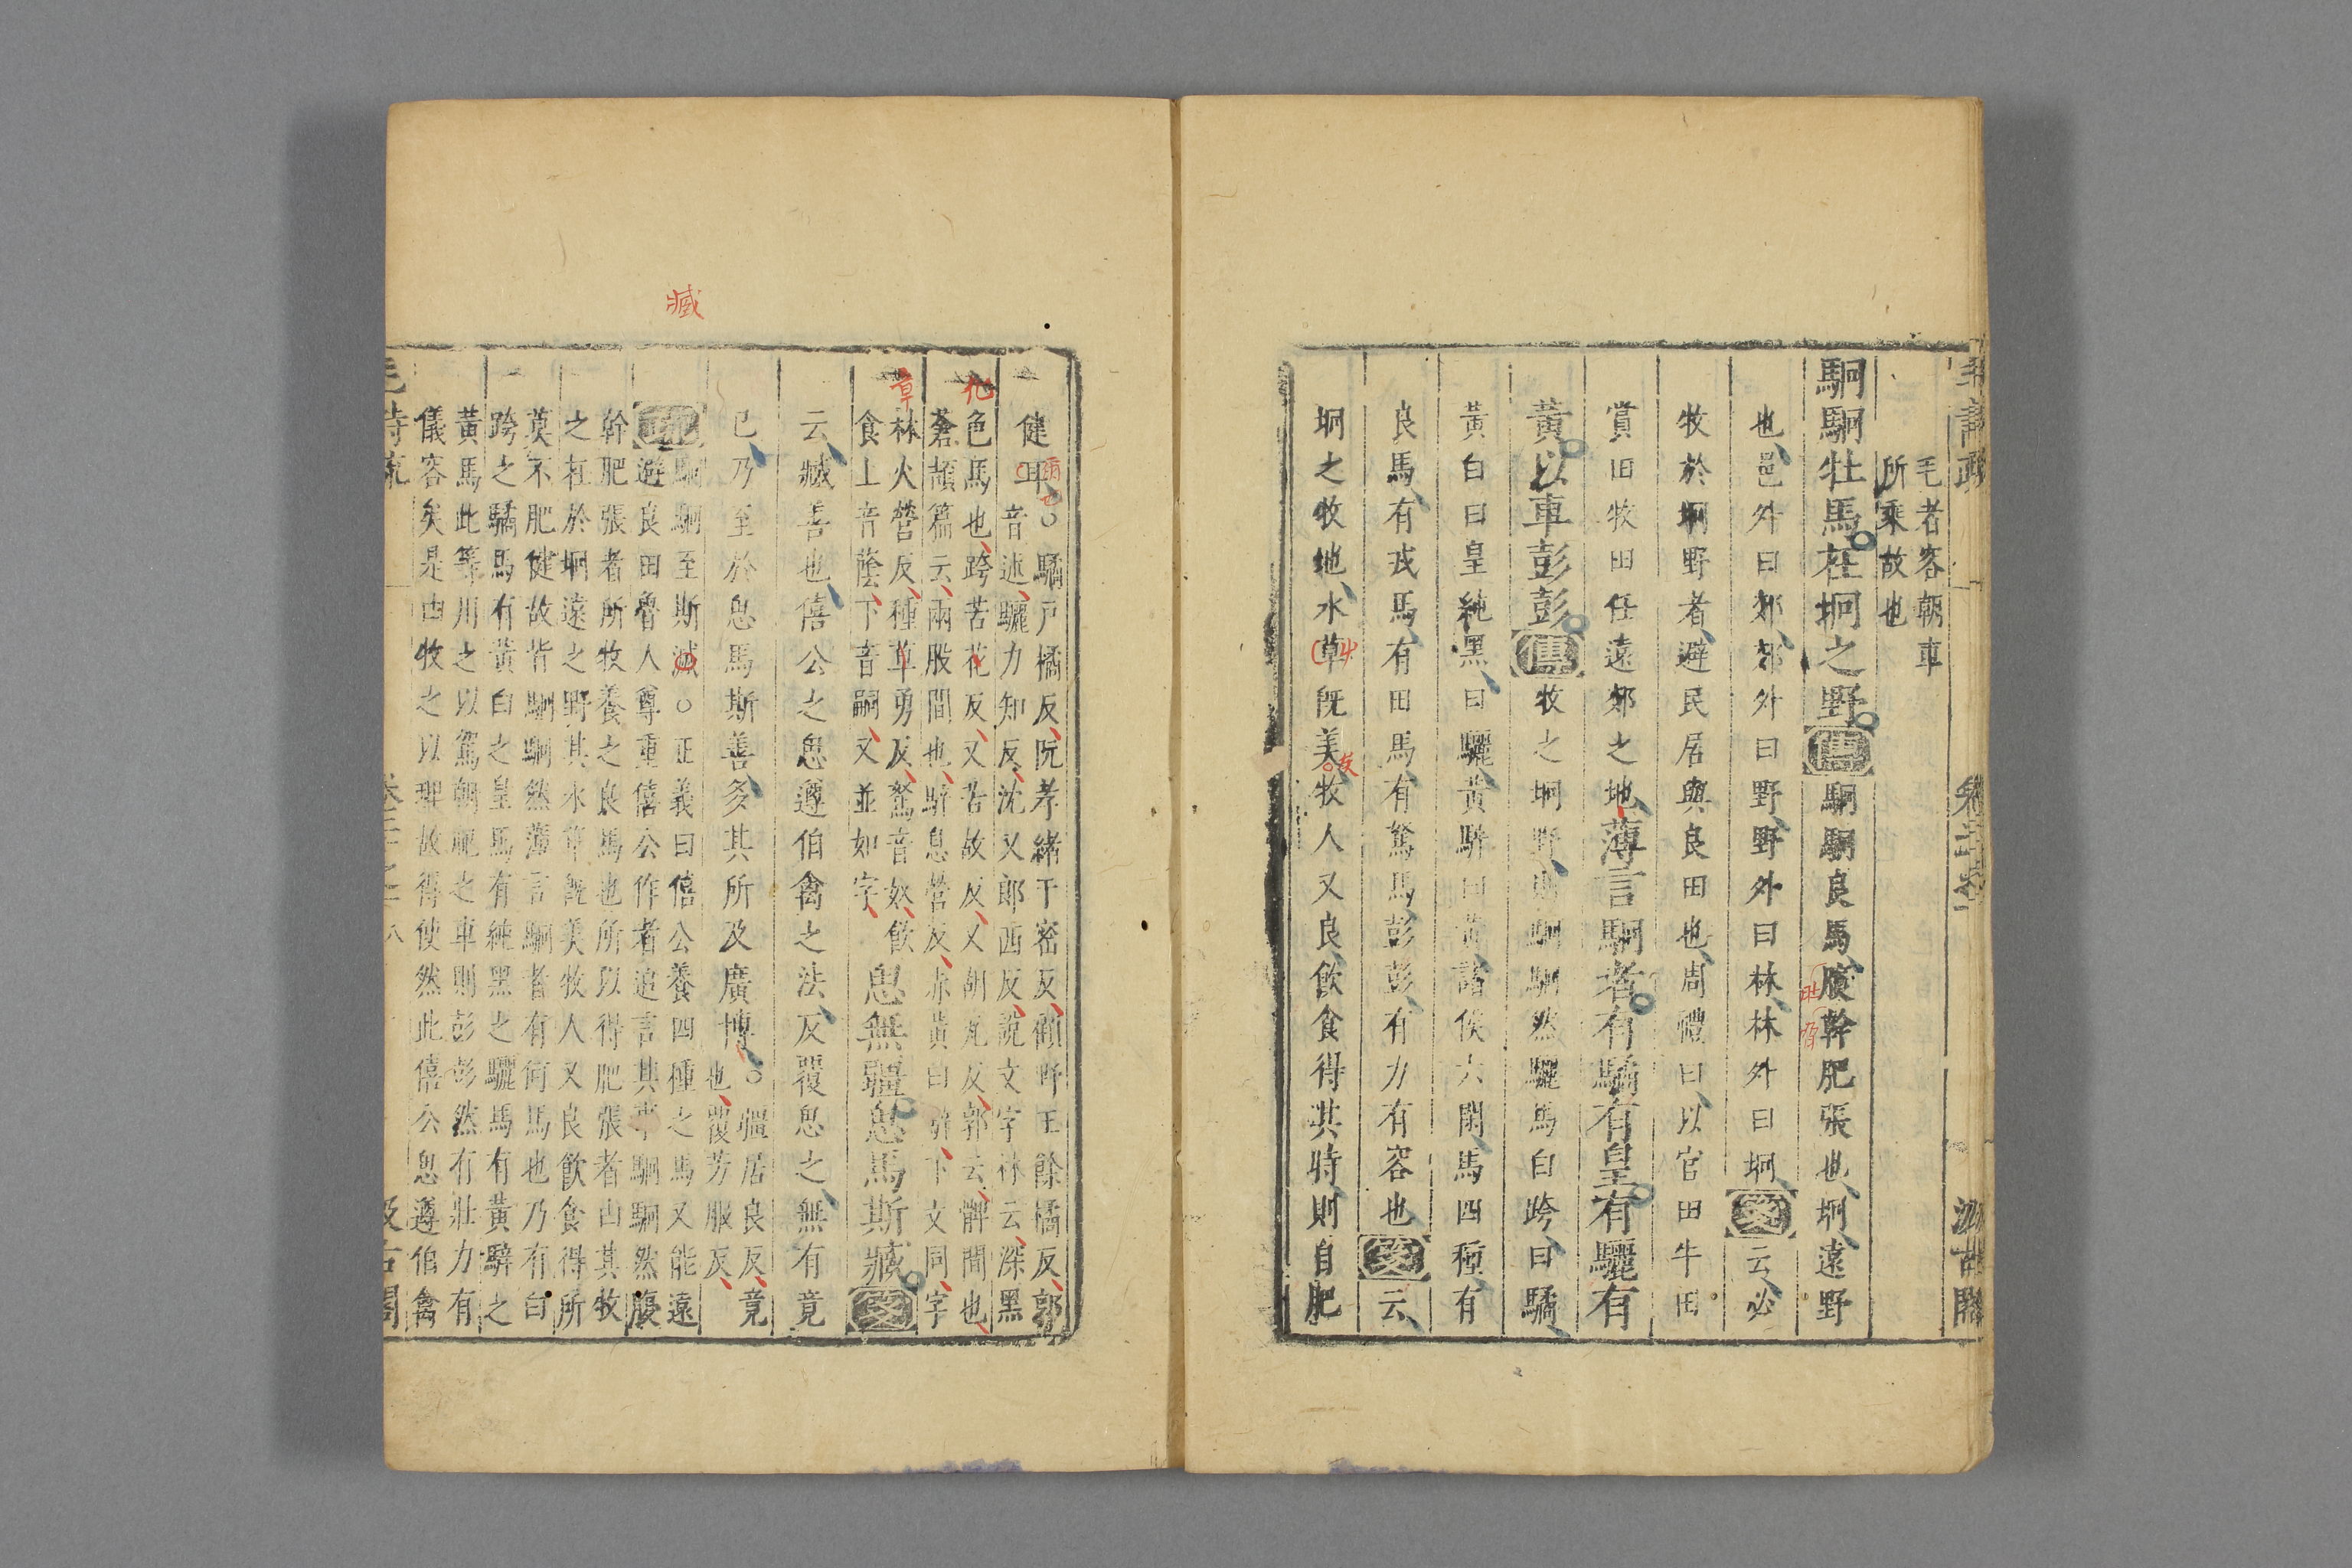 毛者容朝車
所乘故也
駉駉牡馬在坰之野傳駉駉良馬腹幹肥張也坰遠野
也邑外曰郊郊外曰野野外曰林林外曰坰箋云必
牧於坰野者避民居與良田也周禮曰以官田牛田
賞田牧田任遠郊之地薄言駉者有驈有皇有驪有
黃以車彭彭傳牧之坰野則駉駉然驪馬白跨曰驈
黃白曰皇純黑曰驪黃騂曰黃諸侯六閑馬四種有
良馬有戎馬有田馬有駑馬彭彭有力有容也箋云
坰之牧地水草既美牧人又良飲食得其時則自肥
汲古閣
臧
健耳○驈戶橘反阮孝緒于密反顧野王餘橘反郭
音述驪力知反沈又郎西反說文字林云深黑
色馬也跨苦花反又苦故反又胡瓦反郭云髀間也
蒼頡篇云兩股間也騂息營反赤黃曰騂下文同字
林火營反種章勇反駑音奴飲
食上音蔭下音嗣又並如字思無疆思馬斯臧箋
云臧善也僖公之思遵伯禽之法反覆思之無有竟
已乃至於思馬斯善多其所及廣博○疆居良反竟
也覆芳服反
駉駉至斯臧○正義曰僖公養四種之馬又能遠
避良田魯人尊重僖公作者追言其事駉駉然腹
幹肥張者所牧養之良馬也所以得肥張者由其牧
之在於坰遠之野其水草既美牧人又良飲食得所
莫不肥健故皆駉駉然薄言駉者有何馬也乃有白
跨之驈馬有黃白之皇馬有純黑之驪馬有黃騂之
黃馬此等用之以駕朝祀之車則彭彭然有壯力有
儀容矣是由牧之以理故得使然此僖公思遵伯禽
毛詩疏
汲古閣